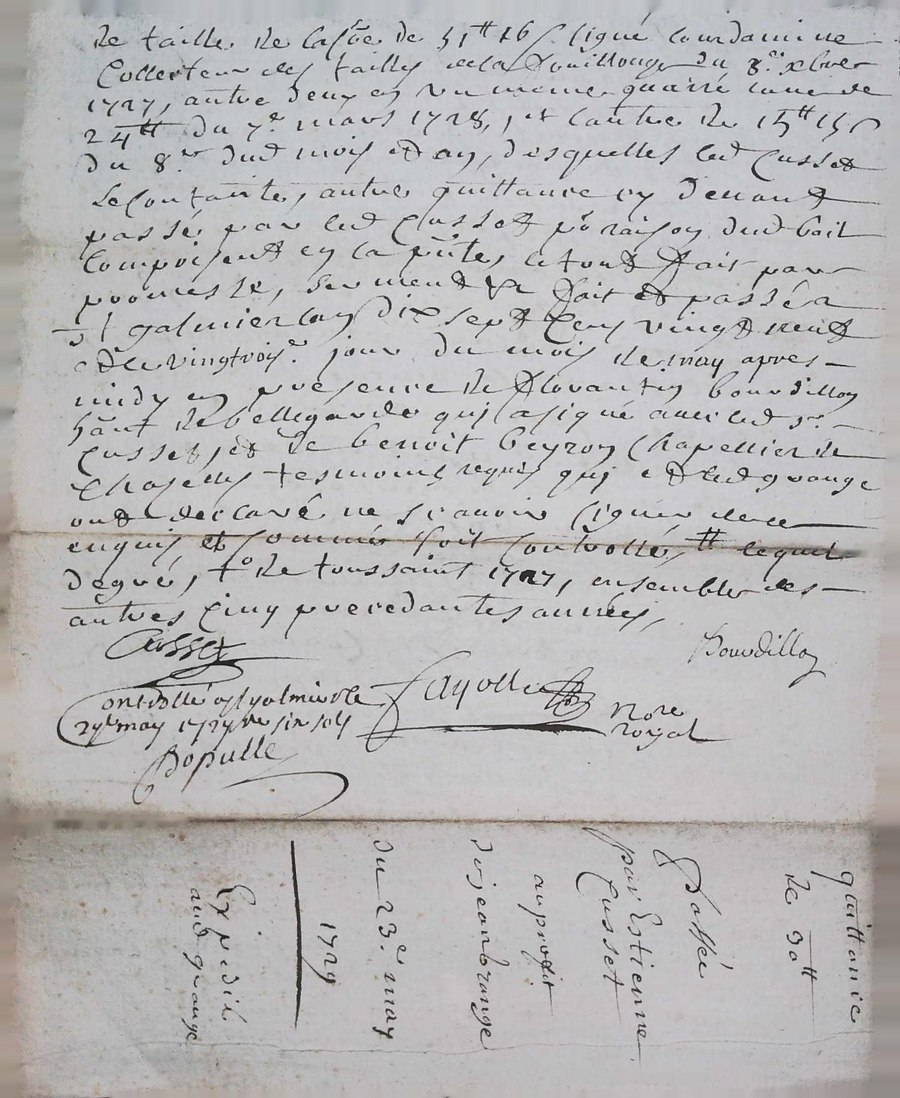 de taille de la so͂e de 51ᵗᵗ 16 s. signé Courdamine
Collecteur des tailles de la Souillouze du 8ᵉ xbre
1727, autre deux en un meme quarré lune de
24ᵗᵗ du 7ᵉ mars 1728, et lautre de 15ᵗᵗ 15 s
du 8ᵉ dud mois et an, desquelles led Cusset
se contante, autre quittance cy devant
passé par led Cusset po raison dud bail
compris en la pn͂te, le tout fait par
promesse, serment &c fait et passé a
St galmier lan dix sept cens vingt neuf
et le vingtrois.ᵉ jour du mois de may apres
midy en presence de Florantin bourdillon
ha͂nt de bellegarde quj a signé avec led sʳ
Cusset, et de benoit beyron chapellier de
Chaselles tesmoins requis quj et led grange
ont declaré ne scavoir signer de ce
enquis et sommé soit controllé, lequel
degré, to de toussaint 1727, ensemble des
autres cinq precedantes années,
Cusset
Bourdillon
Controllé a st galmier le
29ᵉ may 1729 six sols
Fayolle
Nore
royal
Dopulle
quittance
de 30ᵗᵗ
Passée
par Estienne
Cusset
au profit
de jean grange
du 23ᵉ may
1729
Expedié
aud grange